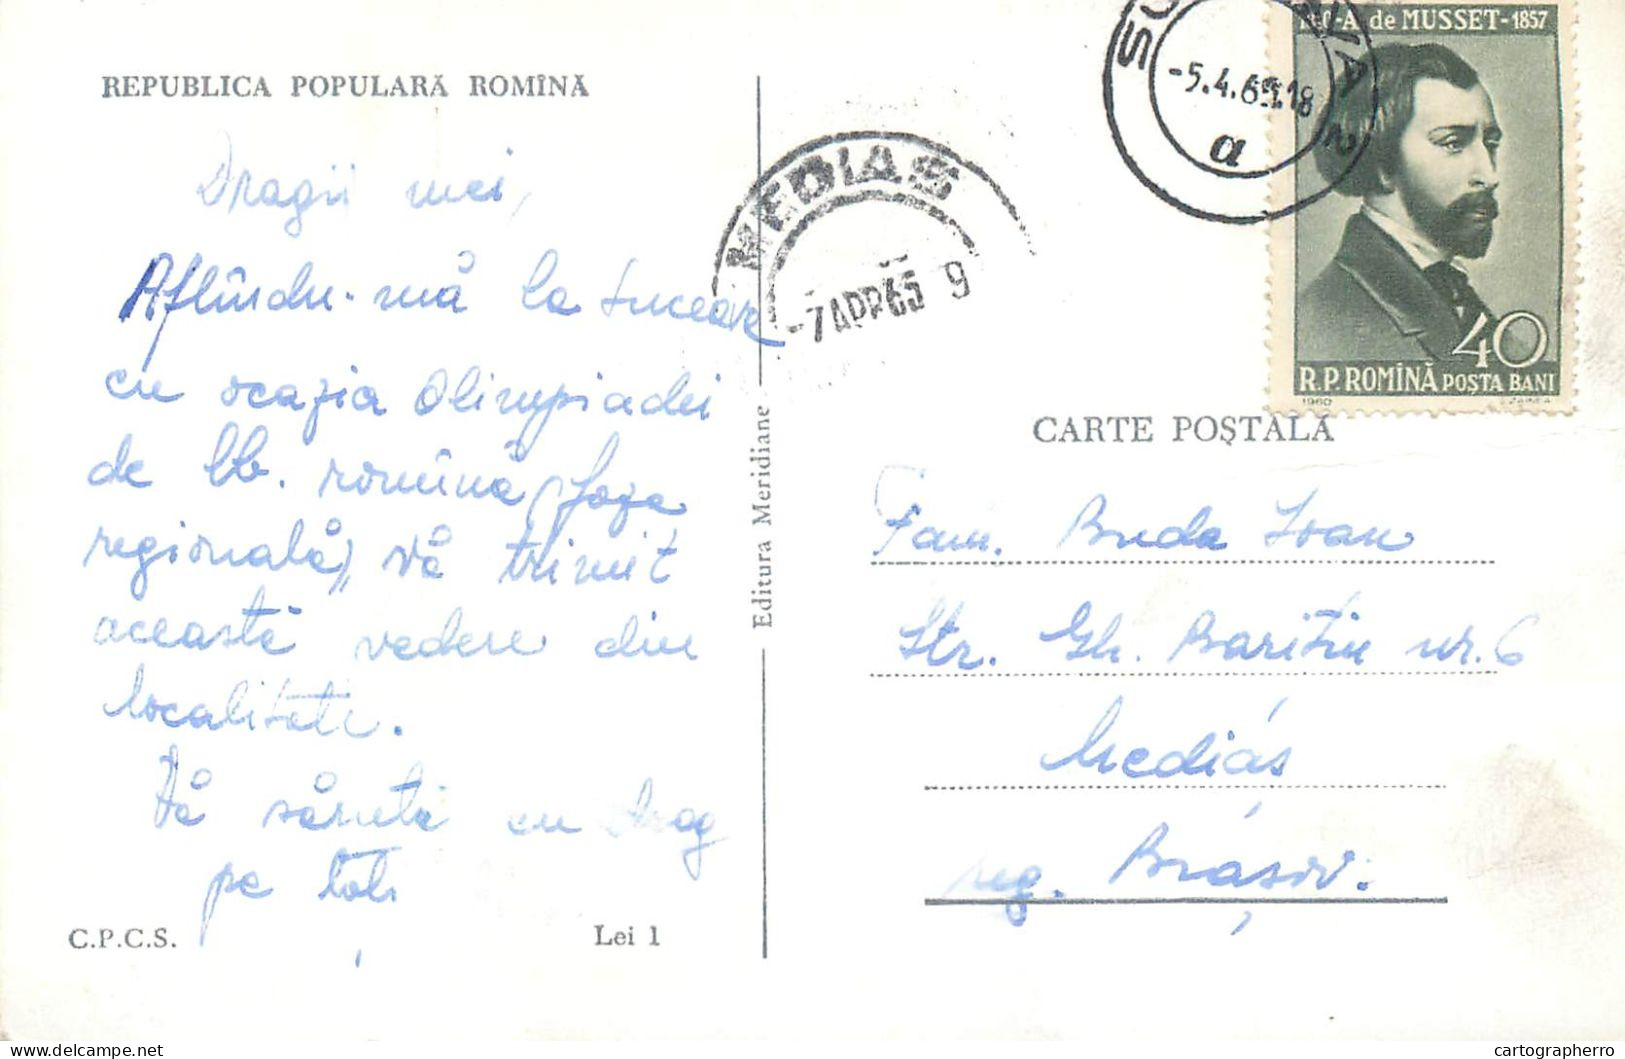 REPUBLICA POPULARĂ ROMÎNĂ
Dragii mei,
Aflîndu-mă la Suceava
cu ocazia Olimpiadei
de lb. romînă (faza
regională), vă trimit
această vedere din
localitate.
Vă sărută cu drag
pe toți
C.P.C.S.
Lei 1
Editura Meridiane
MEDIAS
-7 APR 65 9
-5.4.65.18
a
A. de MUSSET-1857
40
R.P. ROMÎNĂ POSTA BANI
1960
CARTE POȘTALĂ
Fam. Buda Ioan
Str. Gh. Barițiu nr. 6
Mediaș
reg. Brașov.
cartographerro